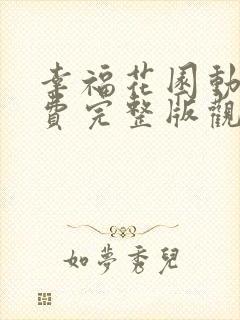 幸福花園動
費完整版觀
如夢秀兒